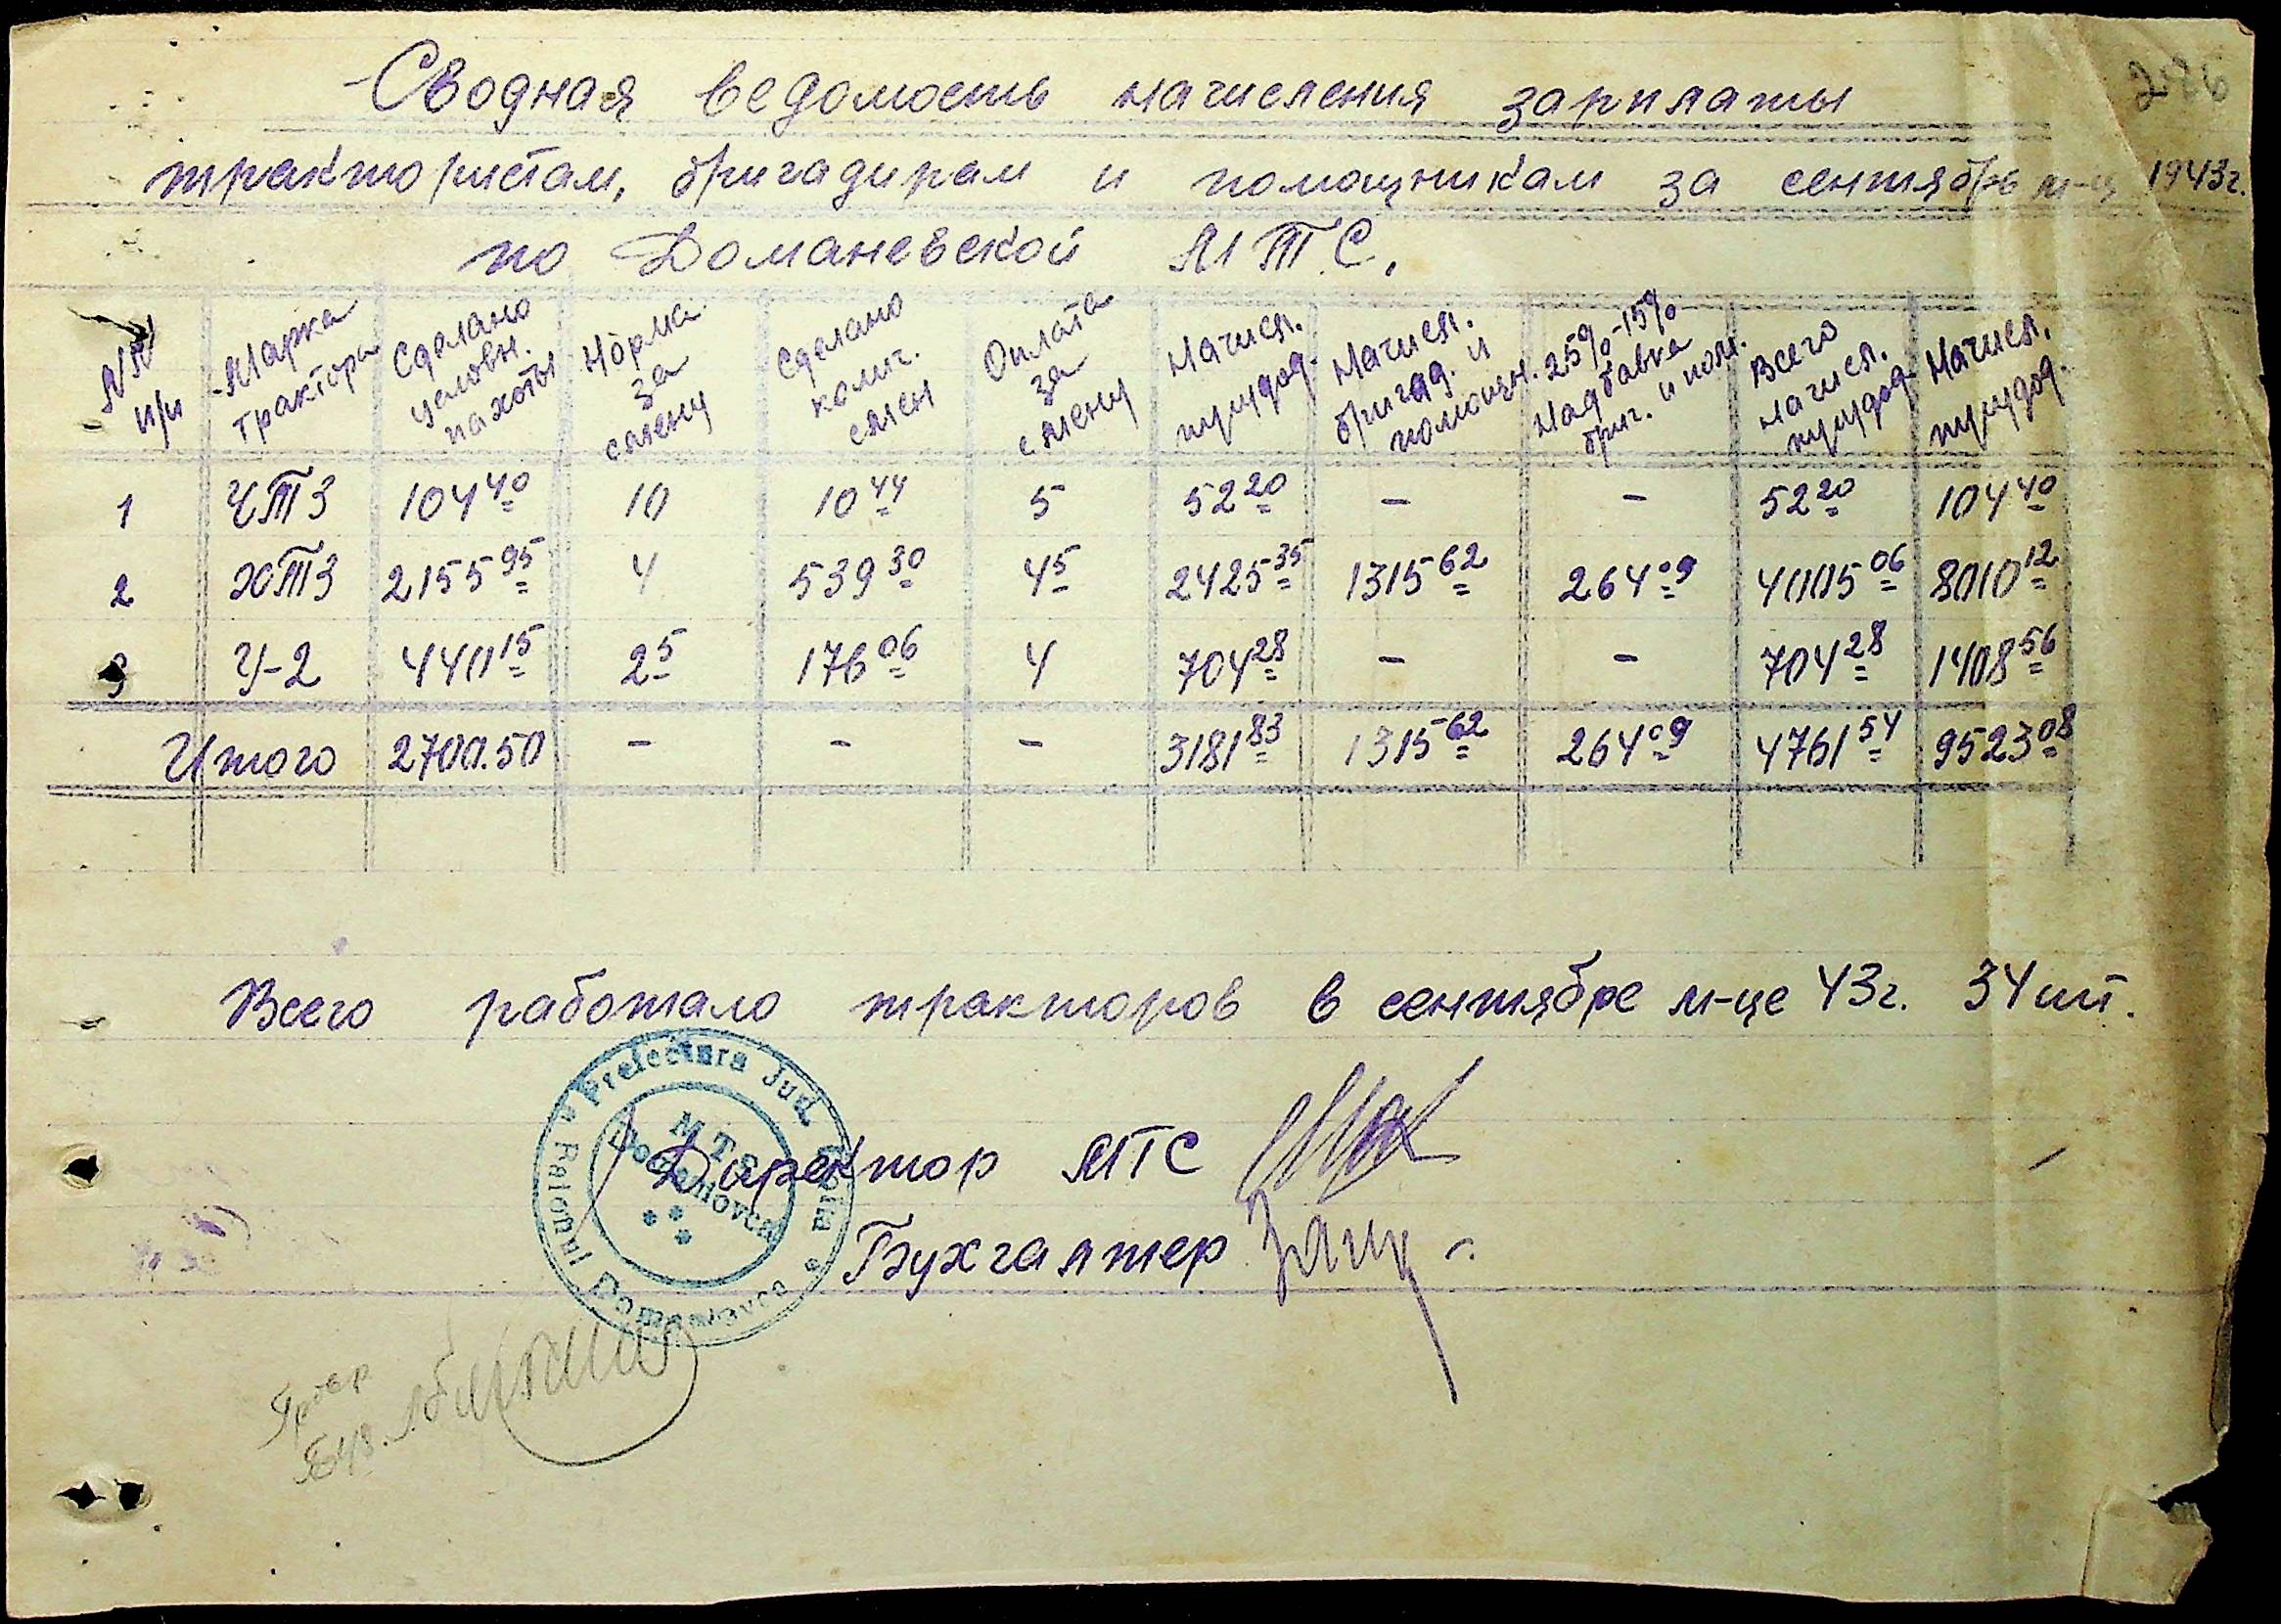 286
Сводная ведомость начисления зарплаты
трактористам, бригадирам и помощникам за сентябрь м-ц 1943г.
по Доманевской МТС.
NN п/п | Марка трактора | Сделано условн. пахоты | Норма за смену | Сделано колич. смен | Оплата за смену | Начисл. трудод. | Начисл. бригад. и помощн. | 25%-15% Надбавка бриг. и пом. | Всего начисл. трудод. | Начисл. трудод.
1 | ЧТЗ | 104 40 | 10 | 10 44 | 5 | 52 20 | - | - | 52 20 | 104 40
2 | ХТЗ | 2155 95 | 4 | 539 30 | 4 5 | 2425 35 | 1315 62 | 264 09 | 4005 06 | 8010 12
3 | У-2 | 440 15 | 2 5 | 176 06 | 4 | 704 28 | - | - | 704 28 | 1408 56
Итого | 2700.50 | - | - | - | 3181 83 | 1315 62 | 264 09 | 4761 54 | 9523 08
Всего работало тракторов в сентябре м-це 43г. 34 шт.
Prefectura Jud. Golta
Raionul Domanovca
MTS
Domanovca
Директор МТС
Бухгалтер